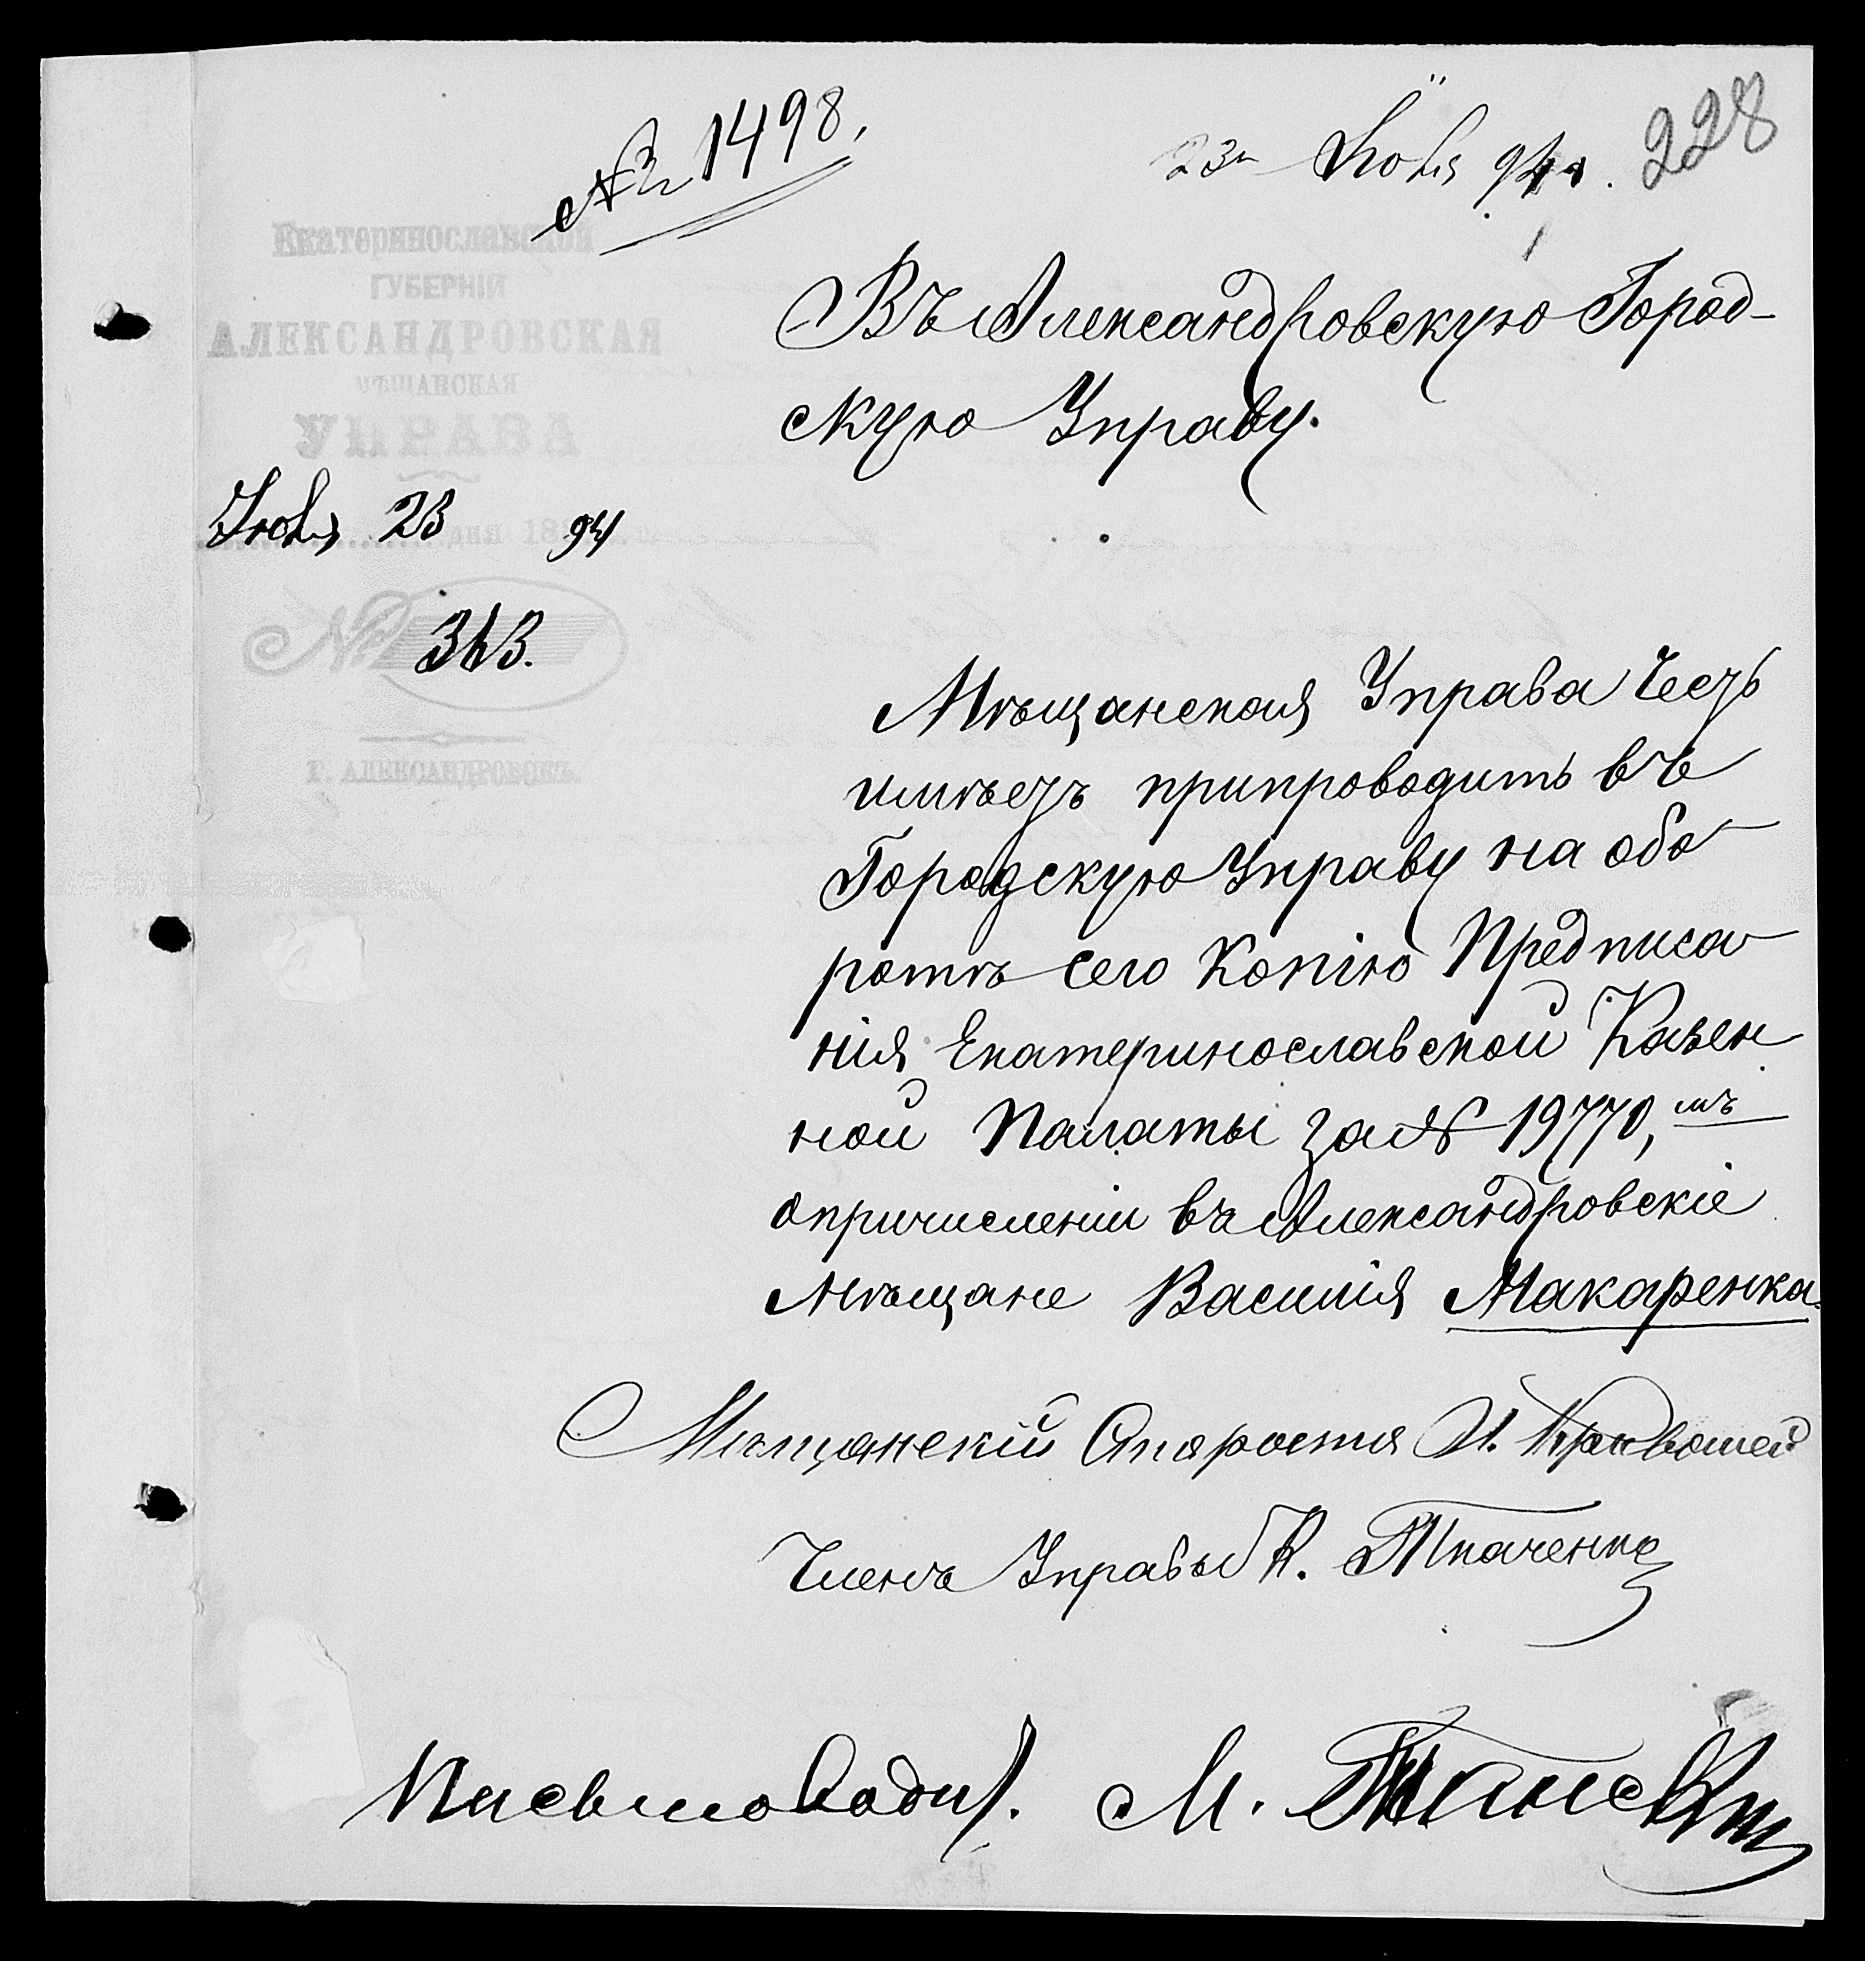 № 1498,
23 Іюня 94 г. 228
Екатеринославской
ГУБЕРНІИ
АЛЕКСАНДРОВСКАЯ
МѢЩАНСКАЯ
УПРАВА
Іюня 23 дня 1894
№ 363.
Г. АЛЕКСАНДРОВСКЪ.
Въ Александровскую Город-
скую Управу.
Мѣщанская Управа Честь
имѣетъ припроводить въ
Городскую Управу на обо-
ротѣ сего Копію Предписа-
нія Екатеринославской Казен
ной Палаты за № 19770,
о причисленіи въ Александровскіе
мѣщане Василія Макаренка.
Мѣщанскій Староста И. Кривошей
Членъ Управы К. Ткаченко
Письмоводит. М.